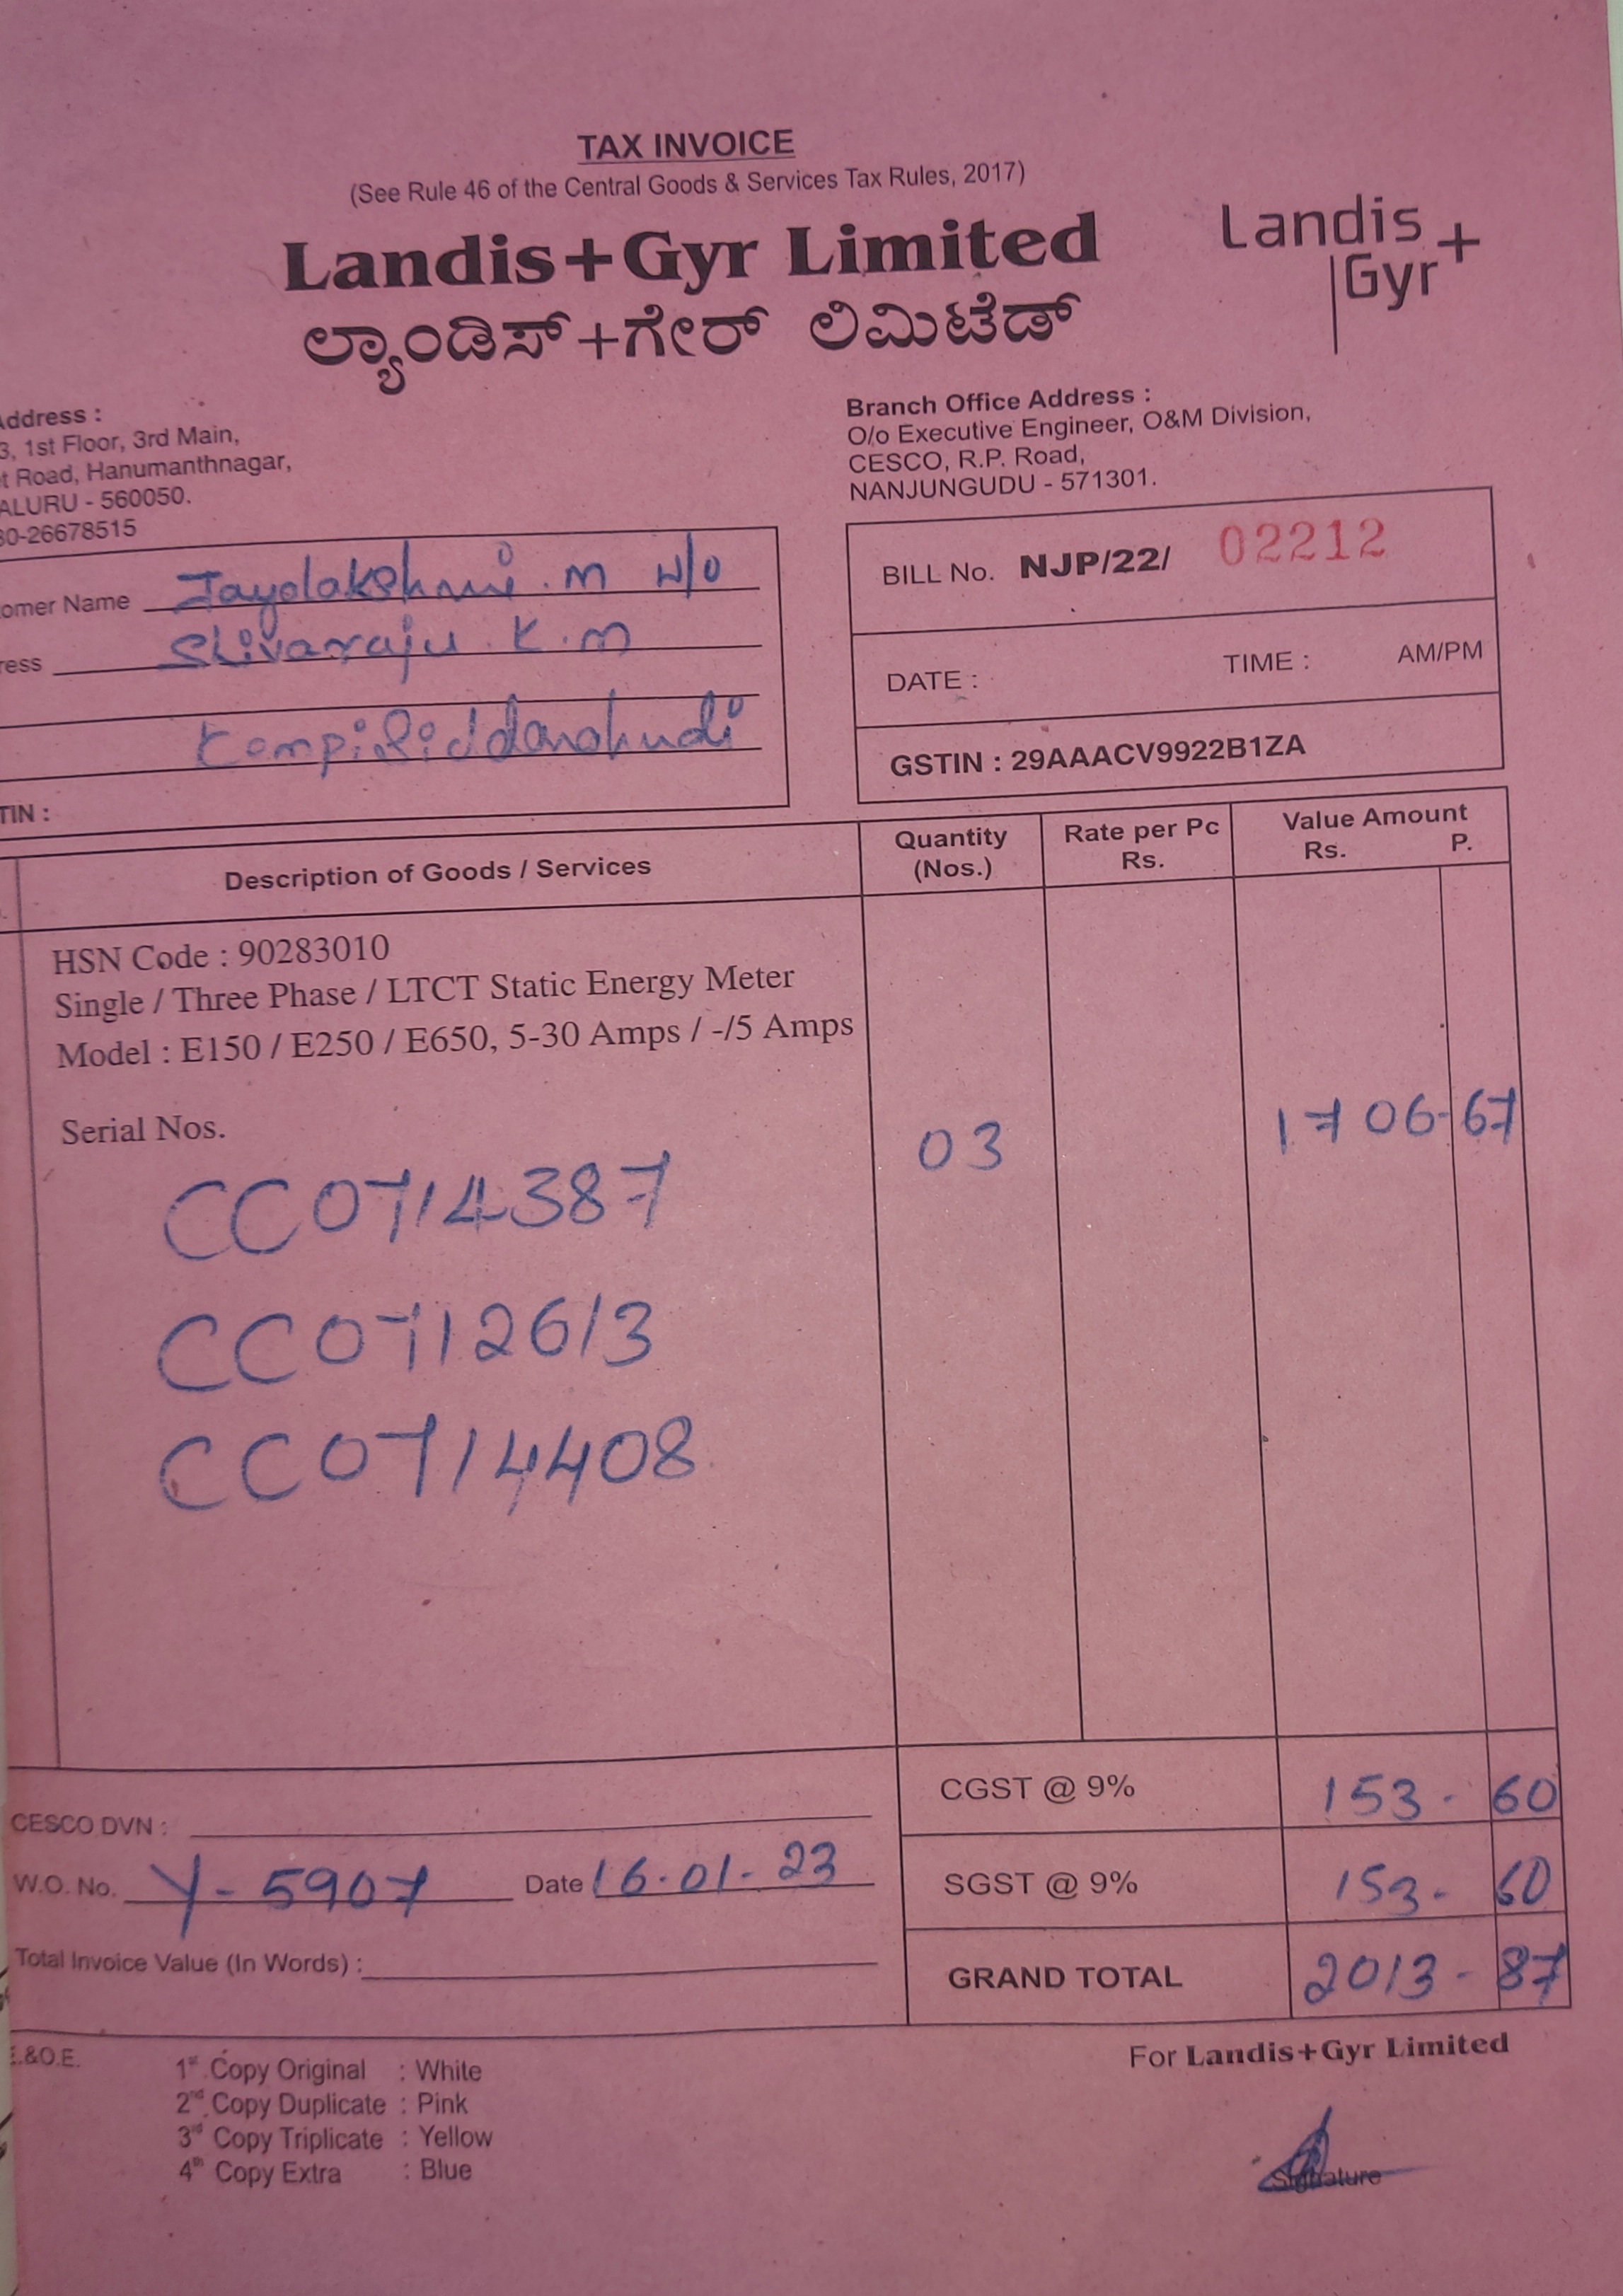 TAX INVOICE
(See Rule 46 of the Central Goods & Services Tax Rules, 2017)
Landis+Gyr Limited
ಲ್ಯಾಂಡಿಸ್+ಗೇರ್ ಲಿಮಿಟೆಡ್
Landis
Gyr+
Address :
3, 1st Floor, 3rd Main,
t Road, Hanumanthnagar,
ALURU - 560050.
80-26678515
Branch Office Address :
O/o Executive Engineer, O&M Division,
CESCO, R.P. Road,
NANJUNGUDU - 571301.
omer Name Jayalakshmi . M W/o
ress Shivaraju . K . M
TIN :
BILL No. NJP/22/ 02212
DATE : TIME : AM/PM
GSTIN : 29AAACV9922B1ZA
Description of Goods / Services
Quantity (Nos.)
Rate per Pc Rs.
Value Amount Rs. P.
HSN Code : 90283010
Single / Three Phase / LTCT Static Energy Meter
Model : E150 / E250 / E650, 5-30 Amps / -/5 Amps
Serial Nos.
03 1706-67
CC0714387
CC0712613
CC0714408
CGST @ 9% 153 - 60
CESCO DVN :
W.O. No. Y - 5907 Date 16.01.23
SGST @ 9% 153 - 60
Total Invoice Value (In Words) :
GRAND TOTAL 2013 - 87
E.&O.E.
1st Copy Original : White
2nd Copy Duplicate : Pink
3rd Copy Triplicate : Yellow
4th Copy Extra : Blue
For Landis+Gyr Limited
Signature